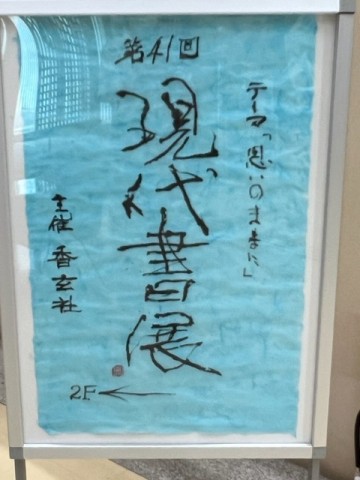 第41回
テーマ「思いのままに」
現代書展
主催 香玄社
2F←